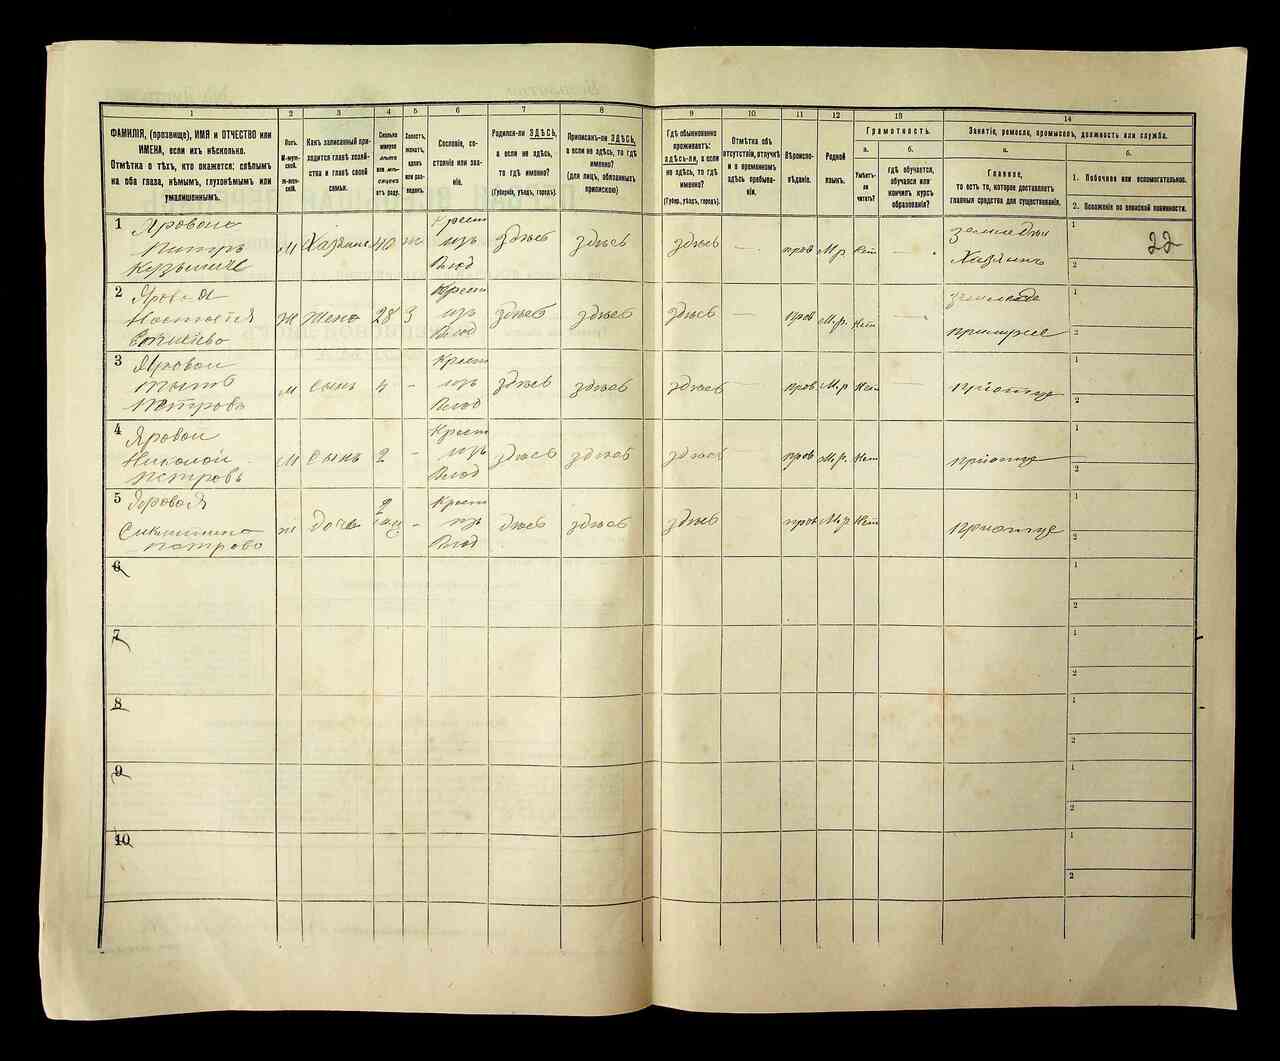 1
2
3
4
5
6
7
8
9
10
11
12
13
14
ФАМИЛІЯ, (прозвище), ИМЯ и ОТЧЕСТВО или
ИМЕНА, если ихъ нѣсколько.
Отмѣтка о тѣхъ, кто окажется: слѣпымъ
на оба глаза, нѣмымъ, глухонѣмымъ или
умалишеннымъ.
Полъ.
М-муж-
ской.
ж-жен-
скій.
Какъ записанный при-
ходится главѣ хозяй-
ства и главѣ своей
семьи.
Сколько
минуло
лѣтъ
или мѣ-
сяцевъ
отъ роду.
Холостъ,
женатъ,
вдовъ
или раз-
веденъ.
Сословіе, со-
стояніе или зва-
ніе.
Родился-ли ЗДѢСЬ,
а если не здѣсь,
то гдѣ именно?
(Губернія, уѣздъ, городъ).
Приписанъ-ли ЗДѢСЬ,
а если не здѣсь, то гдѣ
именно?
(для лицъ, обязанныхъ
припискою)
Гдѣ обыкновенно
проживаетъ:
здѣсь-ли, а если
не здѣсь, то гдѣ
именно?
(Губер., уѣздъ, городъ).
Отмѣтка объ
отсутствіи, отлучкѣ
и о временномъ
здѣсь пребыва-
ніи.
Вѣроиспо-
вѣданіе.
Родной
языкъ.
Грамотность.
а.
б.
Умѣетъ-
ли
читать?
гдѣ обучается,
обучался или
кончилъ курсъ
образованія?
Занятіе, ремесло, промыселъ, должность или служба.
а.
б.
Главное,
то есть то, которое доставляетъ
главныя средства для существованія.
1. Побочное или вспомогательное.
2. Положеніе по воинской повинности.
22
1
Яровой
Петръ
Кузьмичъ
м
Хазяинъ
40
ж
Крест
изъ
Влад
здѣсь
здѣсь
здѣсь
—
прав
М.р.
Нет
—
земледѣл
Хазяинъ
1
2
2
Яровая
Настасія
ж
Жена
28
З
Крест
изъ
Влад
здѣсь
здѣсь
здѣсь
—
прав
М.р.
Нет
—
1
2
3
Яровой
Петровъ
м
Сынъ
4
-
Крест
изъ
Влад
здѣсь
здѣсь
здѣсь
прав
М.р.
Нет
1
2
4
Яровой
Николай
Петровъ
м
Сынъ
2
-
Крест
изъ
Влад
здѣсь
здѣсь
здѣсь
прав
М.р.
Нет
1
2
5
Яровая
Петрова
ж
дочь
-
Крест
изъ
Влад
здѣсь
здѣсь
здѣсь
прав
М.р.
Нет
1
2
6
1
2
7
1
2
8
1
2
9
1
2
10
1
2